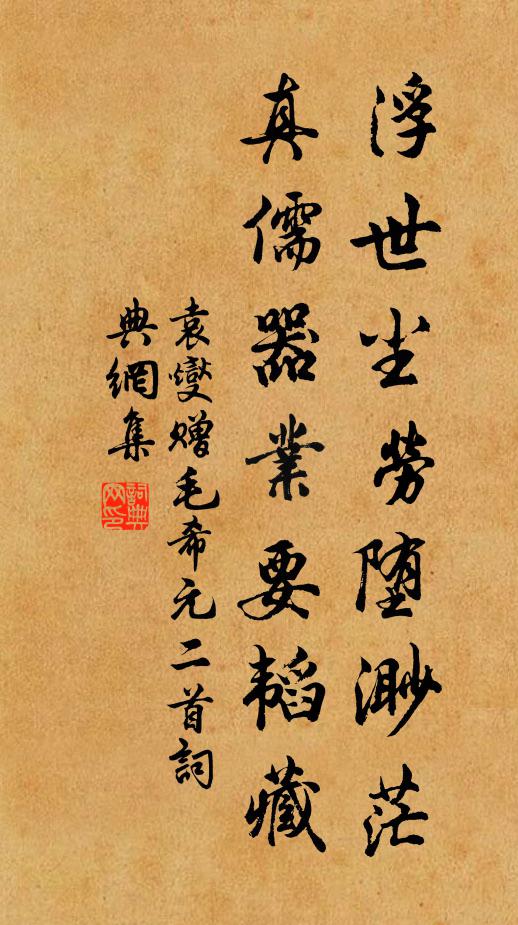 浮世尘勞堕渺茫
真儒器業要韬藏
袁燮赠毛希元二首詞
典網集
詞典網印